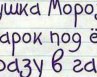 ушка Моро
арок под ё
разу в га